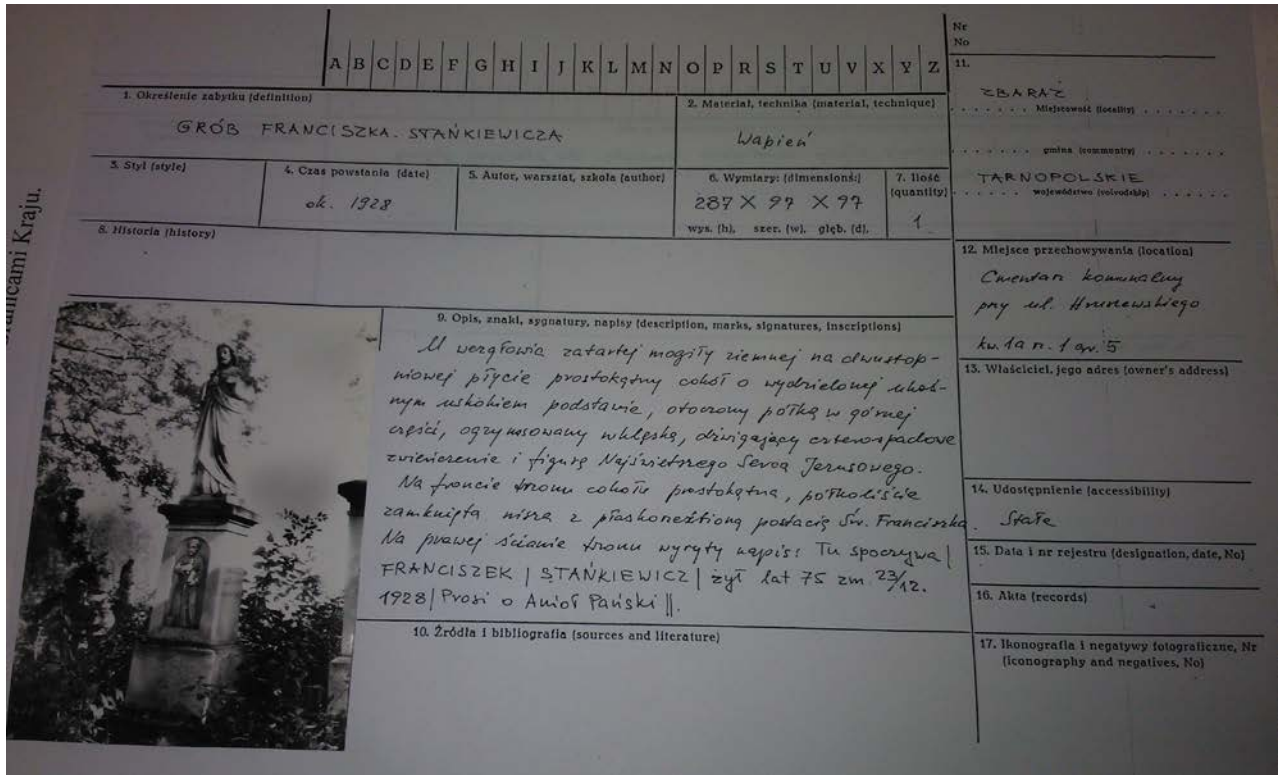 Nr
No
A B C D E F G H I J K L M N O P R S T U V X Y Z
1. Określenie zabytku (definition)
GRÓB FRANCISZKA STAŃKIEWICZA
2. Materiał, technika (material, technique)
Wapień
3. Styl (style)
4. Czas powstania (date)
ok. 1928
5. Autor, warsztat, szkoła (author)
6. Wymiary: (dimensions:)
287 X 97 X 97
wys. (h), szer. (w), głęb. (d).
7. Ilość
(quantity)
1
8. Historia (history)
9. Opis, znaki, sygnatury, napisy (description, marks, signatures, inscriptions)
U wezgłowia zatartej mogiły ziemnej na dwustop-
niowej płycie prostokątny cokół o wydzielonej ukoś-
nym uskokiem podstawie, otoczony półką w górnej
części, ogzymsowany wklęską, dźwigający czterospadowe
zwieńczenie i figurę Najświętszego Serca Jezusowego.
Na froncie tronu cokołu prostokątna, półkoliście
zamknięta nisza z płaskorzeźbioną postacią Św. Franciszka.
Na prawej ścianie tronu wyryty napis: Tu spoczywa |
FRANCISZEK | STAŃKIEWICZ | żył lat 75 zm. 23/12.
1928 | Prosi o Anioł Pański ||.
10. Źródła i bibliografia (sources and literature)
11.
ZBARAŻ
Miejscowość (locality)
gmina (community)
TARNOPOLSKIE
województwo (voivodship)
12. Miejsce przechowywania (location)
Cmentarz komunalny
przy ul. Hruszewskiego
kw. 1a n. 1 gr. 5
13. Właściciel, jego adres (owner's address)
14. Udostępnienie (accessibility)
Stałe
15. Data i nr rejestru (designation, date, No)
16. Akta (records)
17. Ikonografia i negatywy fotograficzne, Nr
(iconography and negatives, No)
Kraju.